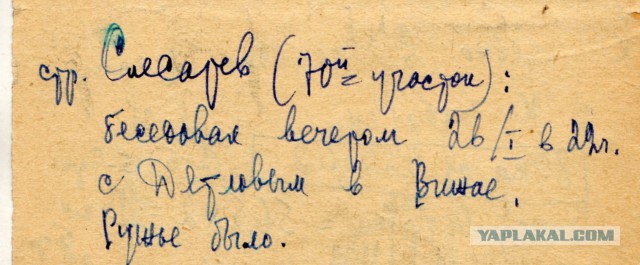 стр. Слесарев (70й участок):
беседовал вечером 26/I в 22ч.
с Дятловым в Вижае.
Ружье было.
YAPLAKAL.COM